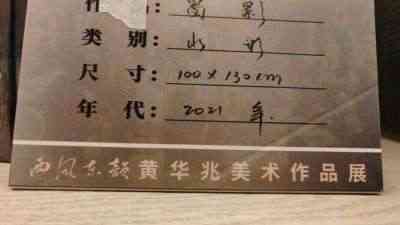 类 别: 水彩
尺 寸: 100×130cm
年 代: 2021 年.
西风东韵 黄华兆美术作品展